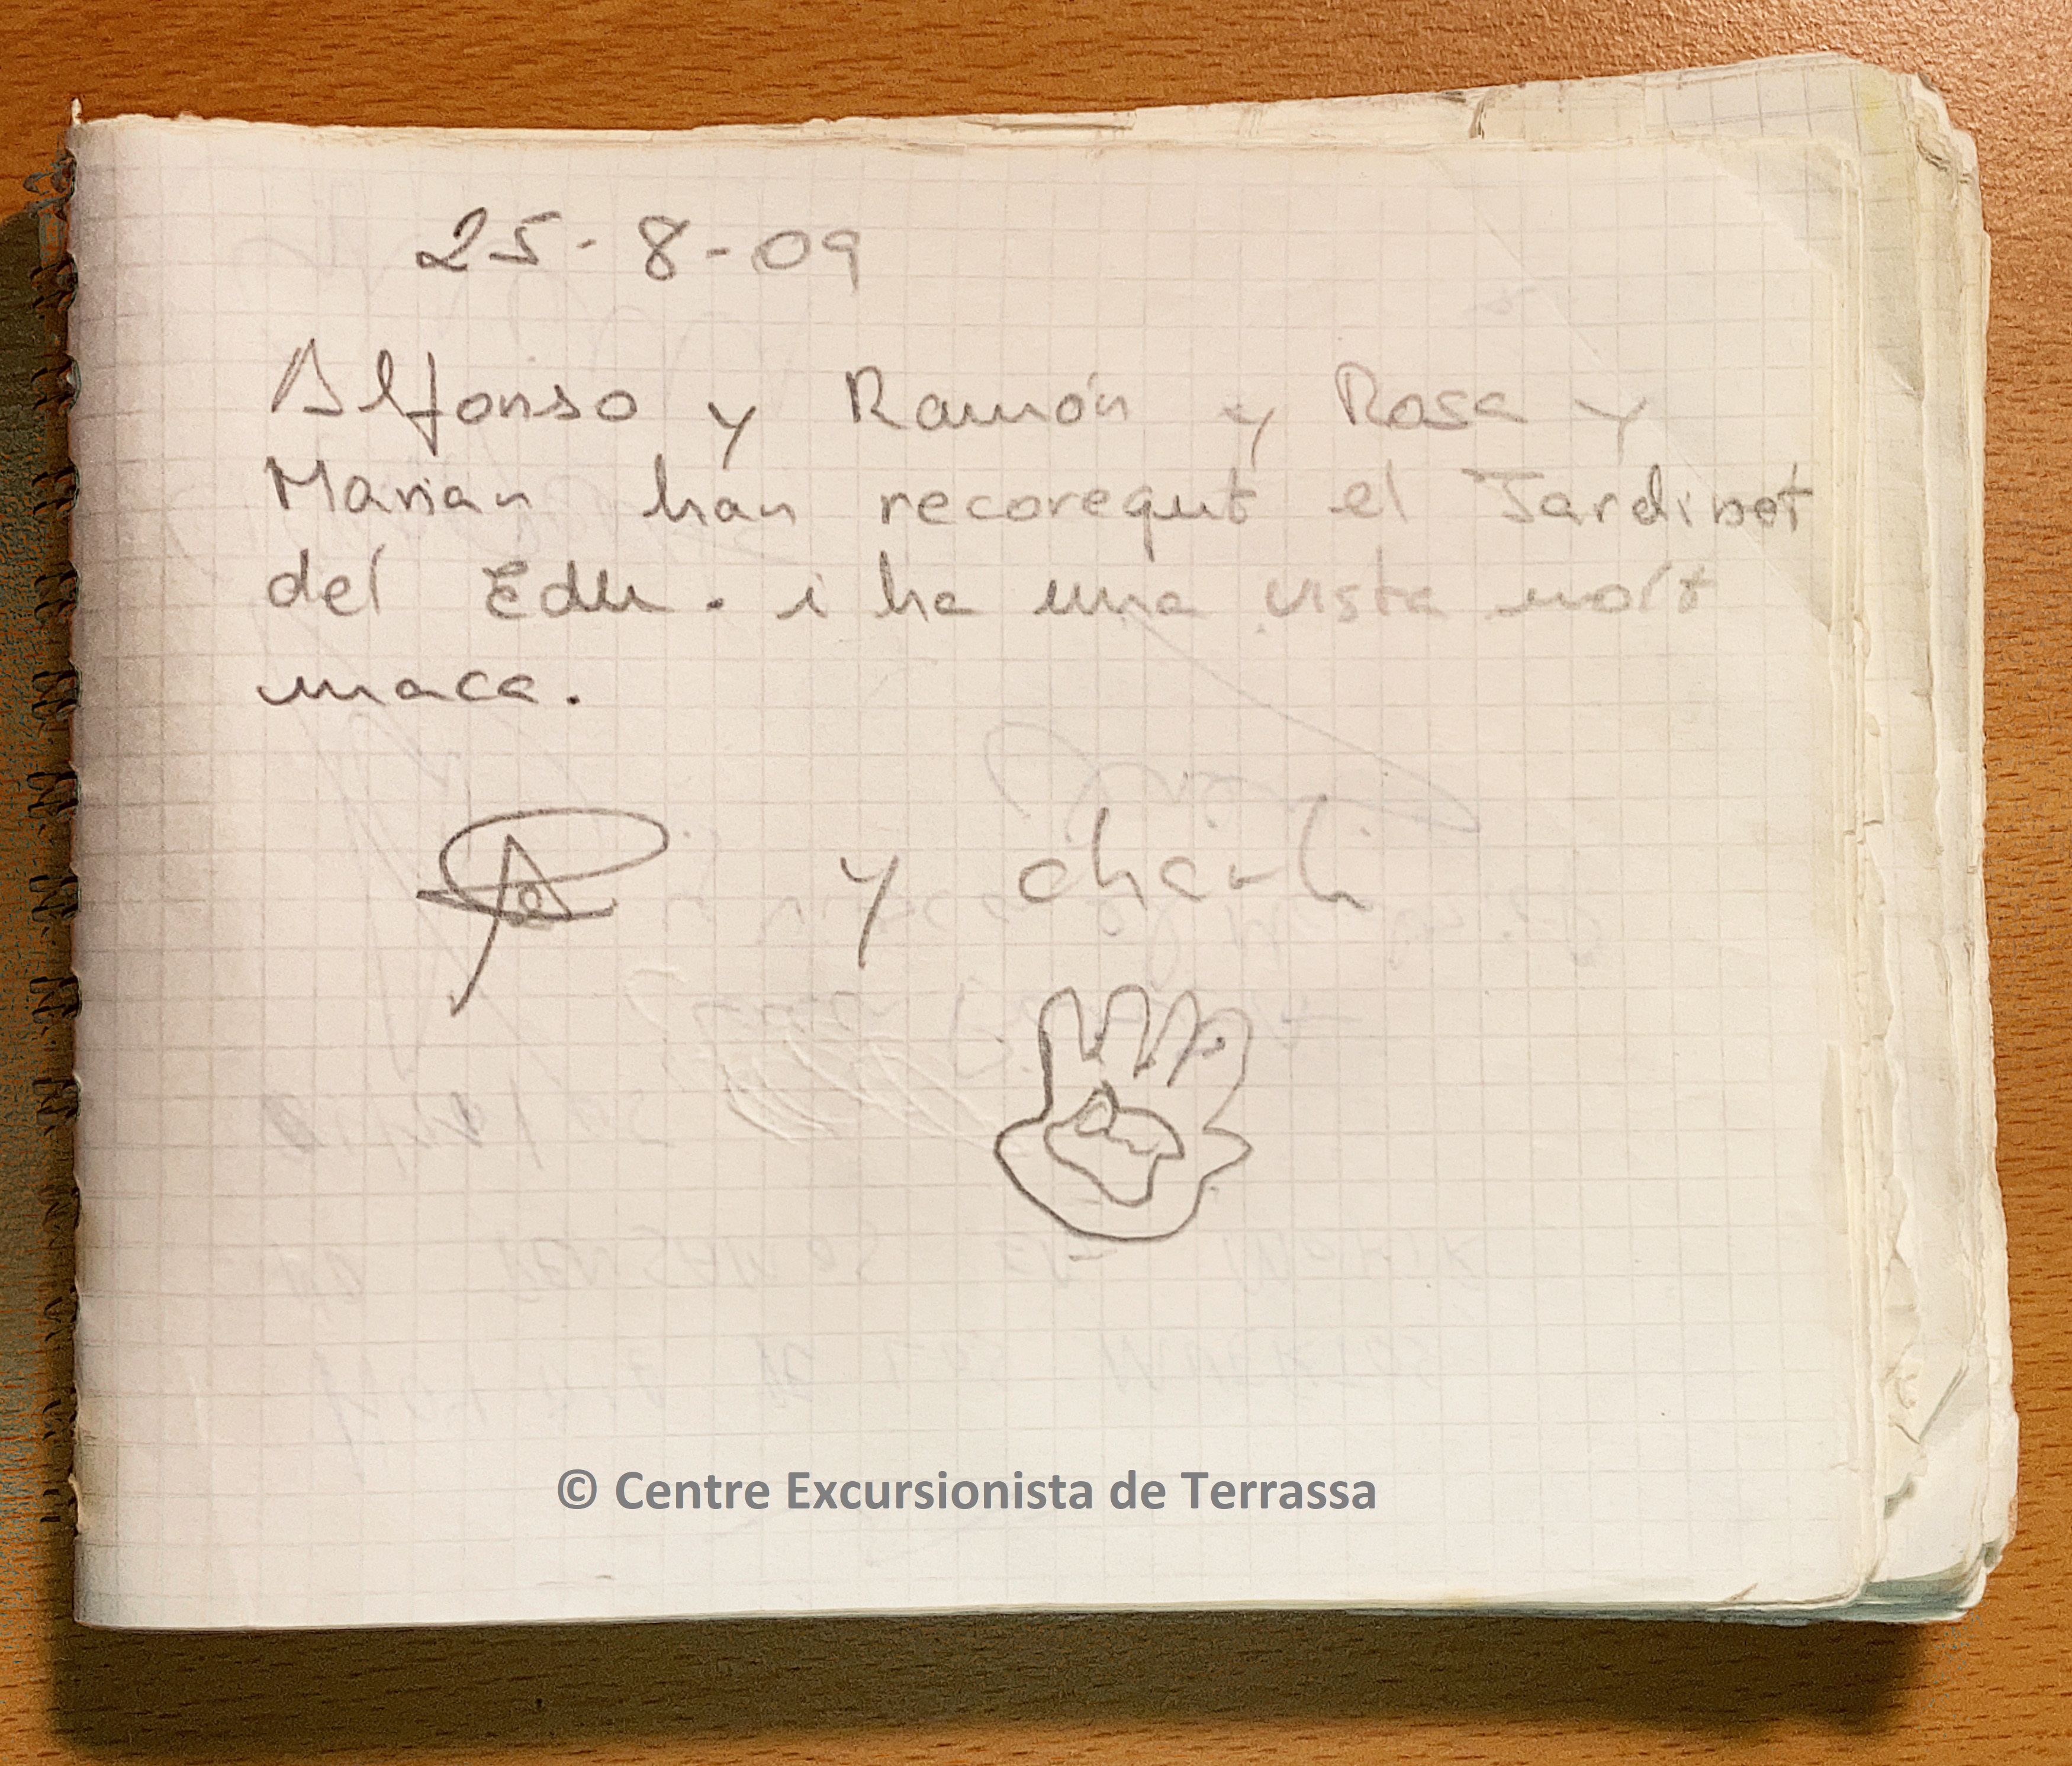 25-8-09
Alfonso y Ramón y Rosa y
Marian han recoregut el Jardinet
del Edu. i ha una vista molt
maca.
y charli
© Centre Excursionista de Terrassa